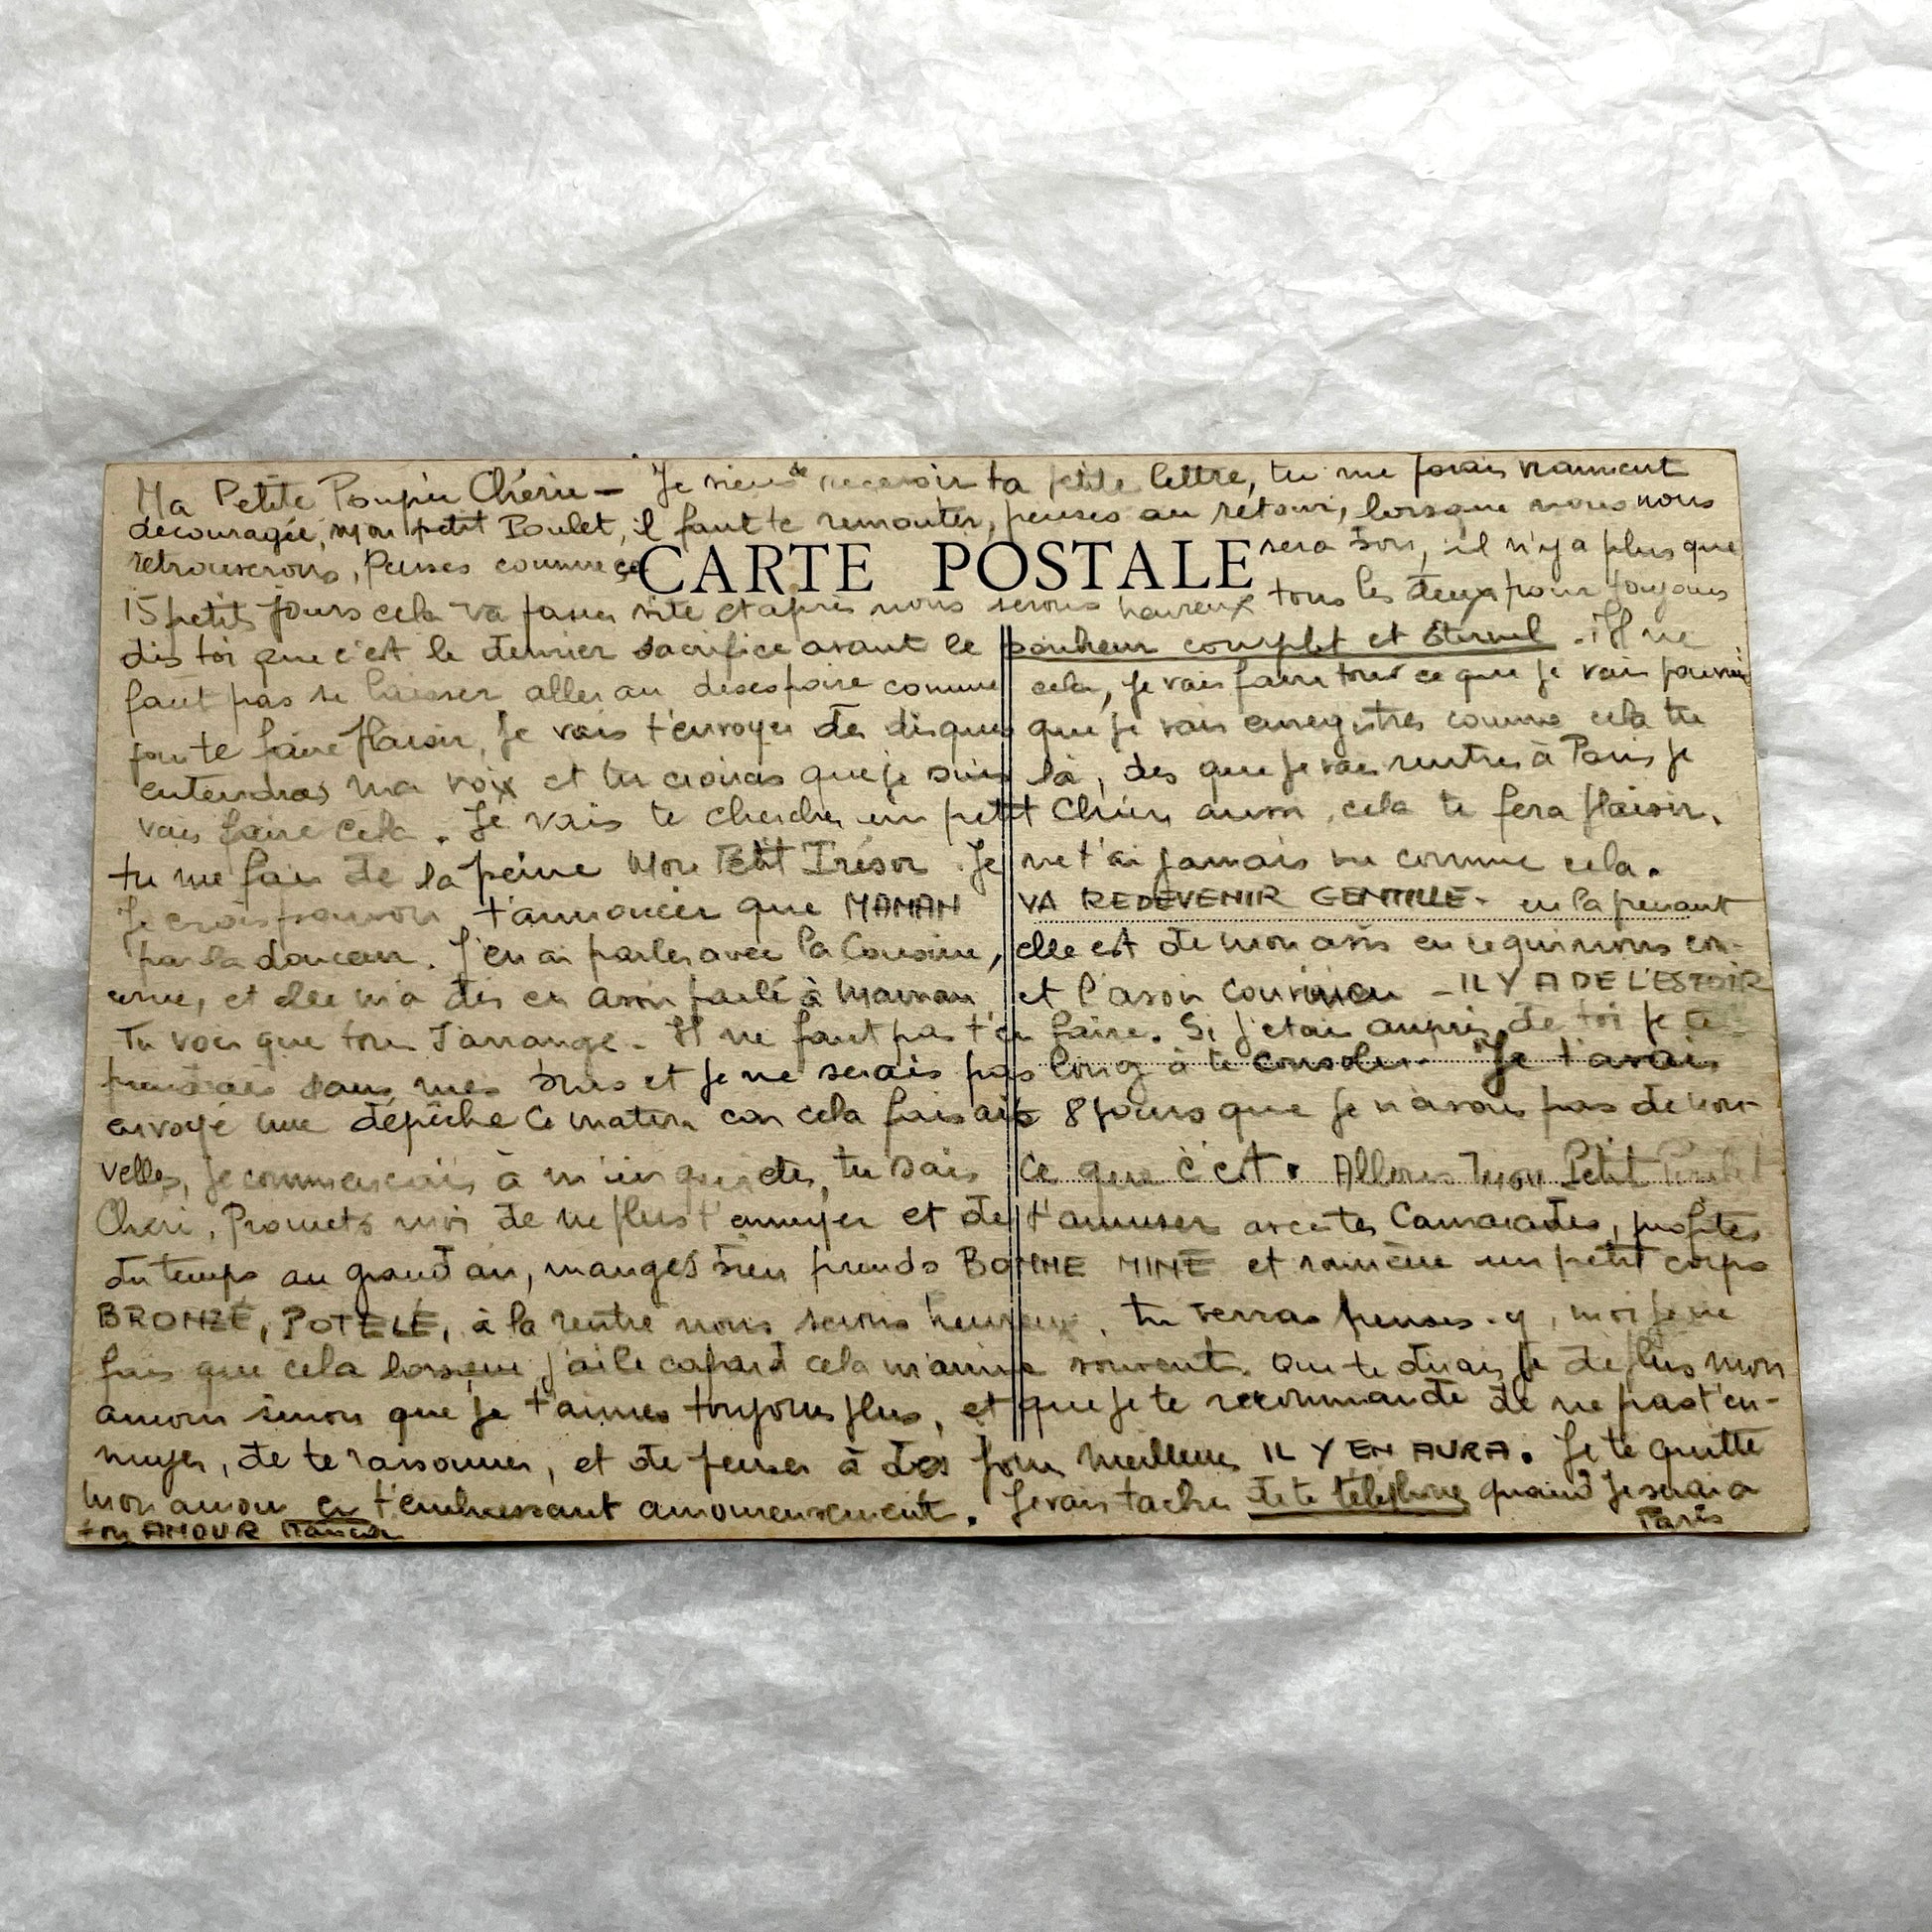 Ma Petite Poupée Chérie - Je viens de recevoir ta petite lettre, tu me parais vraiment
decouragée, mon petit Poulet, il faut te remonter, penses au retour, lorsque nous nous
retrouverons, Penses comme ça sera bon, il n'y a plus que
CARTE POSTALE
15 petits jours cela va passer vite et après nous serons heureux tous les deux pour toujours
dis toi que c'est le dernier sacrifice avant le bonheur complet et éternel. Il ne
faut pas se laisser aller au desespoire comme cela, je vais faire tout ce que je vais pouvoir
pour te faire plaisir, Je vais t'envoyer des disques que je vais enregistrer comme cela tu
entendras ma voix et tu croiras que je suis là, des que je vais rentrer à Paris je
vais faire cela. Je vais te chercher un petit Chien aussi, cela te fera plaisir.
tu me fais de la peine Mon Petit Trésor. Je ne t'ai jamais vu comme cela.
Je crois pouvoir t'annoncer que MAMAN VA REDEVENIR GENTILLE - en la prenant
par la douceur. J'en ai parler avec la Cousine, elle est de mon avis en ce qui nous con-
cerne, et elle m'a dis en avoir parlé à Maman et l'avoir - IL Y A DE L'ESPOIR
Tu vois que tous s'arrange - Il ne faut pas t'en faire. Si j'etais auprès de toi je te
prendrais dans mes bras et je ne serais pas long à te consoler - Je t'avais
envoyé une dépêche ce matin car cela faisais 8 jours que je n'avais pas de nou-
velles, je commencais à m'inquieter, tu sais ce que c'est. Allons mon Petit Poulet
Cheri, Promets moi de ne plus t'ennuyer et de t'amuser avec tes Camarades, profites
du temps au grand air, manges bien prends BONNE MINE et ramène un petit corps
BRONZÉ, POTELÉ, à la rentré nous serons heureux, tu verras penses-y, moi je ne
fais que cela lorsque j'ai le cafard cela m'arrive souvent. Que te dirais je de plus mon
amour sinon que je t'aimes toujours plus, et que je te recommande de ne pas t'en-
nuyer, de te raisonner, et de penser à des jours meilleurs IL Y EN AURA. Je te quitte
mon amour en t'embrassant amoureusement. Je vais tacher de te téléphoner quand je serai a
ton AMOUR Paris